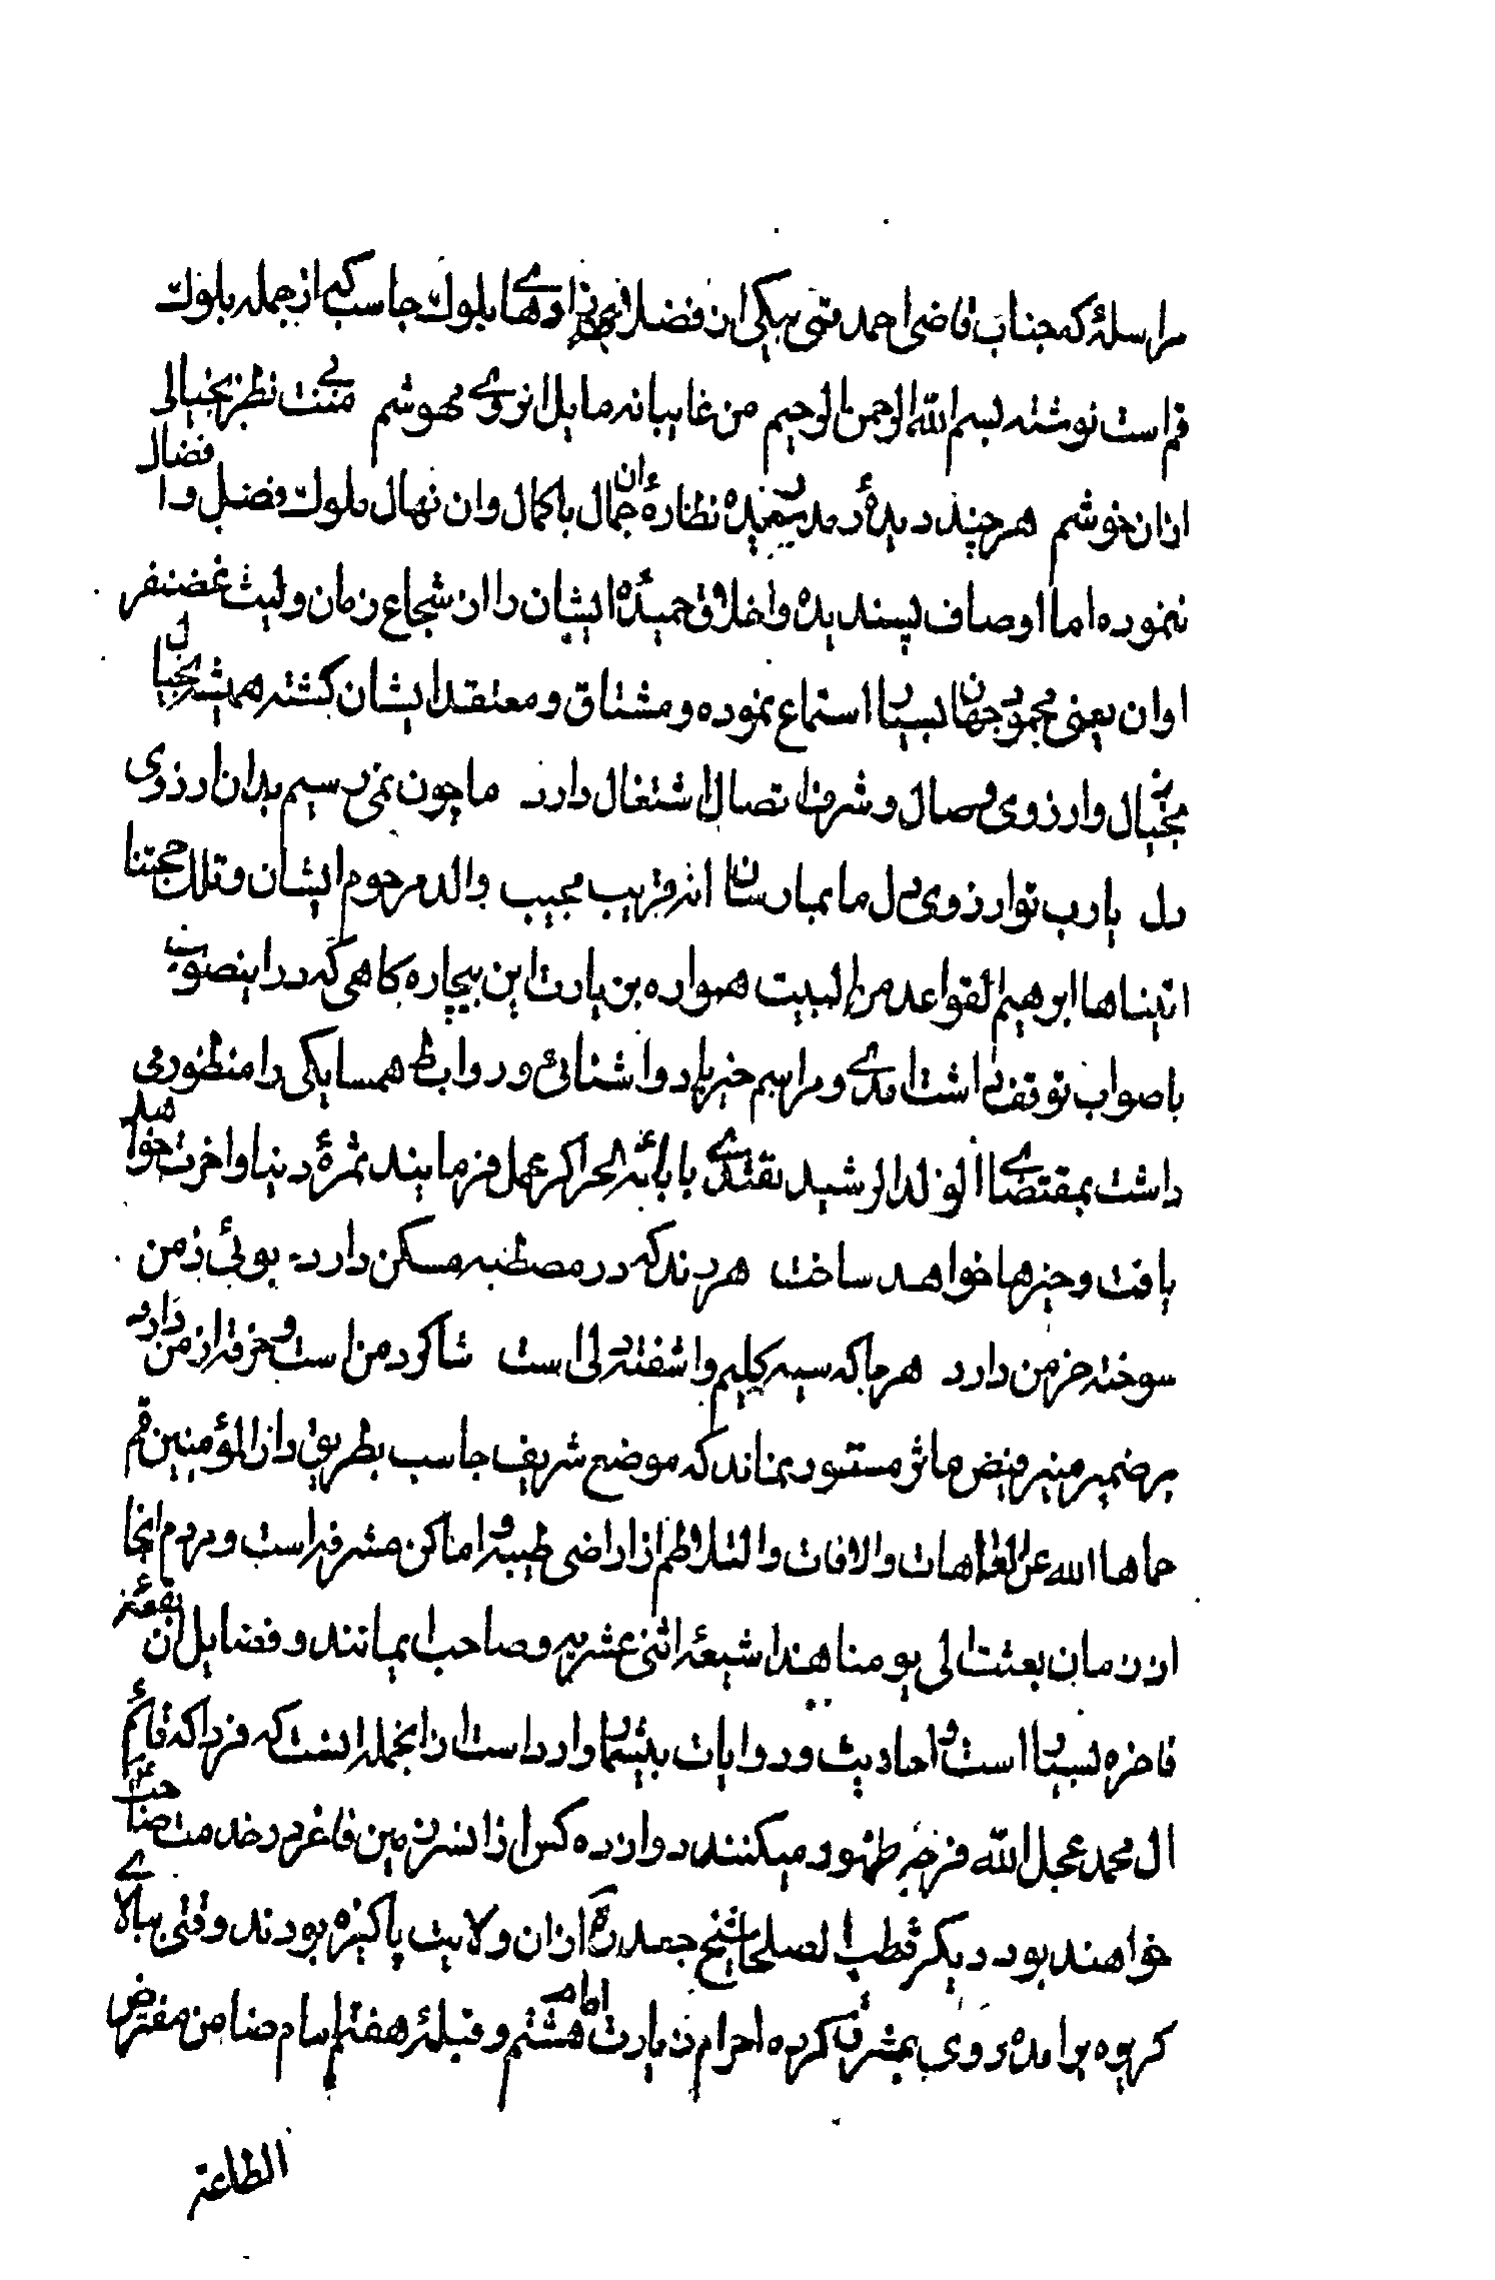 مراسلهٔ که جناب قاضی احمد قمی بیکی از فضلا و دهها بلوک جاسب که از جمله بلوک
قم است نوشته بسم الله الرحمن الرحیم من غایبانه مایل آن روی مهوشم بی منت نظر بخیالی
ازان خوشم هر چند دیدهٔ رمد رسیده نظارهٔ آن جمال باکمال و آن نهال ملوک فضل و افضال
ننموده اما اوصاف پسندیده و اخلاق حمیدهٔ ایشان را از شجاع زمان و لیث غضنفر
اوان یعنی محبوبی جهان بسیار استماع نموده و مشتاق و معتقد ایشان گشته همیشه بخیال
بخیال و ارزوی وصال و شرف اتصال اشتغال دارد ما چون نمی رسیم بدان ارزوی
دل یارب تو ارزوی دل ما بما رسان انه قریب مجیب والد مرحوم ایشان و تلک حجتنا
اتیناها ابرهیم القواعد من البیت همواره بزیارت این بیچاره گاهی که در اینصوب
باصواب توقف داشت امدی و مراسم خیرباد و اشنائی و روابط همسایکی را منظور می
داشت بمقتضای الولد الرشید یقتدی بابائه الحر اکر عمل فرمایند ثمرهٔ دنیا و اخرت خواهند
یافت و خیرها خواهد ساخت هر رند که در مصطبه مسکن دارد بوئی ز من
سوخته خرمن دارد هر جا که سیه کلیم و اشفته دلی است شاکرد من است و خرقه از من دارد
بر ضمیر منیر فیض ماثر مستور نماند که موضع شریف جاسب بطریق دار المؤمنین قم
حماها الله عن العاهات والافات والتلاطم از اراضی طیبه و اماکن مشرفه است و مردم انجا
از زمان بعثت الی یومنا هذا شیعهٔ اثنی عشریه و صاحب ایمانند و فضایل آن بقعهٔ
فاخره بسیار است و احادیث و روایات بیشمار وارد است ازانجمله انست که فردا که قائم
ال محمد عجل الله فرجه ظهور میکنند دوازده کس از انسرزمین فاغر در خدمت حضرت
خواهند بود دیکر قطب الصلحا شیخ جعده که ازان ولایت پاکیزه بودند وقتی ببالای
کریوه برامده روی بمشرق کرده احرام زیارت امام هشتم و قبلهٔ هفتم امام ضامن مفترض
الطاعة